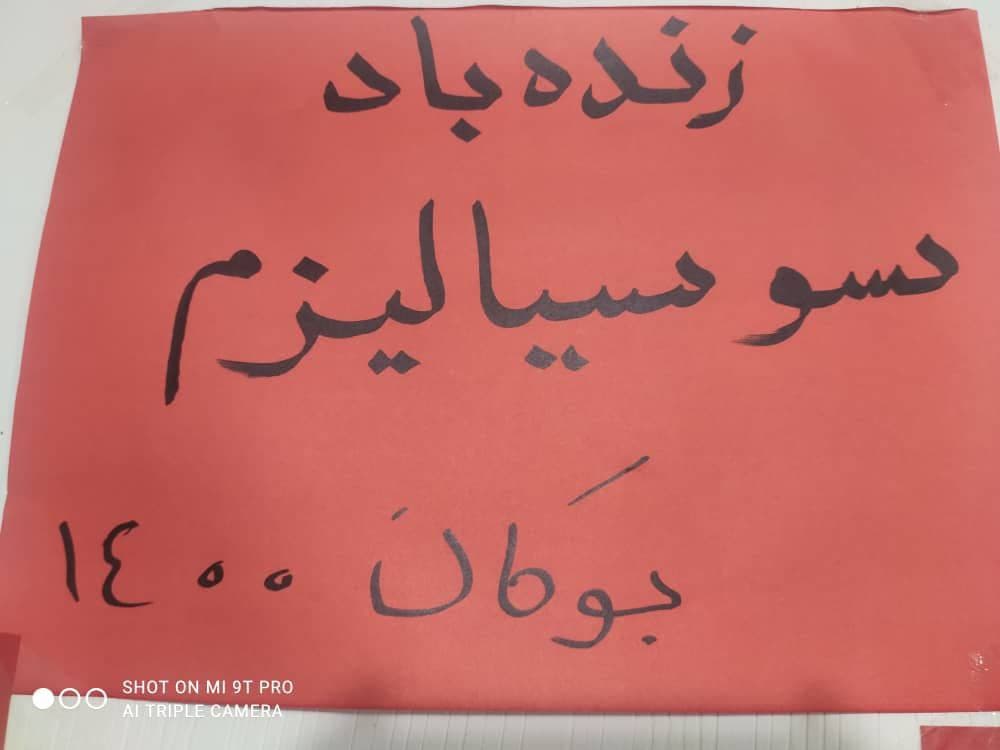 زنده باد
سوسیالیزم
بوکان ١٤٠٠
SHOT ON MI 9T PRO
AI TRIPLE CAMERA